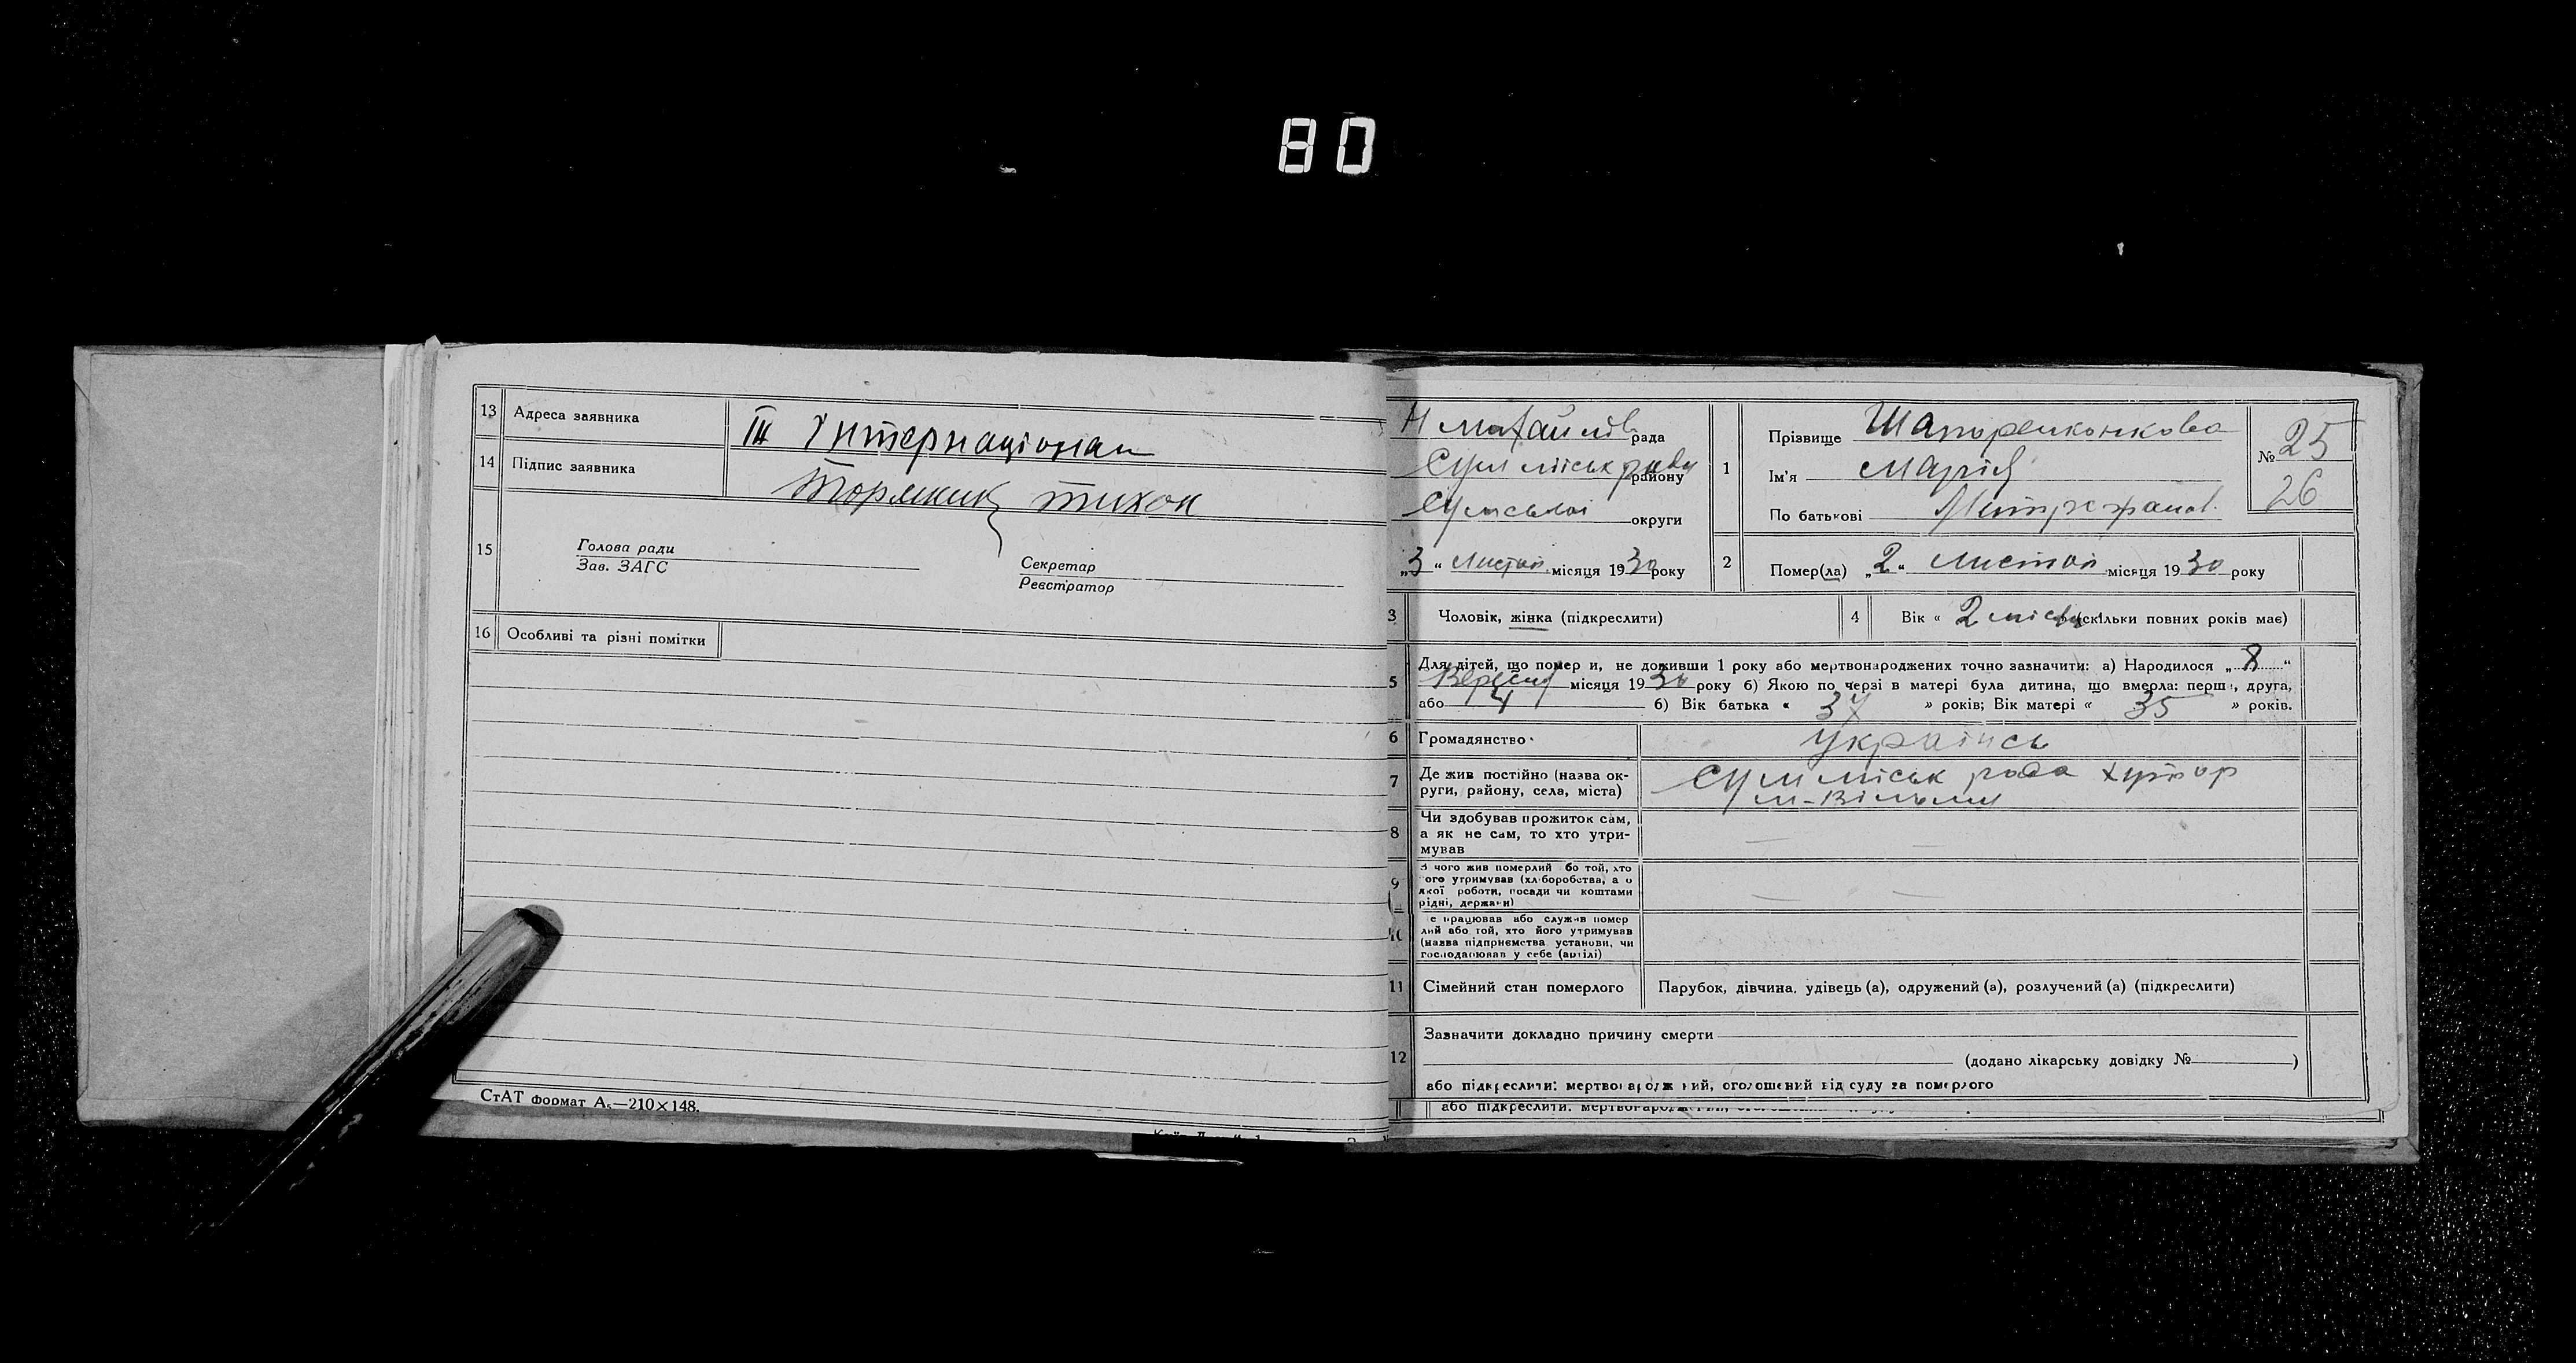 80
13 Адреса заявника III Інтернаціонал
14 Підпис заявника тихон
15 Голова ради
Зав. ЗАГС
Секретар
Реєстратор
16 Особливі та різні помітки
СтАТ формат А₅—210×148.
рада
Сум міськ ради району
Сумської округи
„3“ Листоп. місяця 1930 року
1 Прізвище
Ім'я Марія
По батькові Митрофанов.
№ 25
26
2 Помер(ла) „2“ Листоп місяця 1930 року
3 Чоловік, жінка (підкреслити)
4 Вік « 2 місяц (скільки повних років має)
5 Для дітей, що помер и, не доживши 1 року або мертвонароджених точно зазначити: а) Народилося „8“
Вересня місяця 1930 року б) Якою по черзі в матері була дитина, що вмерла: перш, друга,
або 4 б) Вік батька « 37 » років; Вік матері « 35 » років.
6 Громадянство українсь
7 Де жив постійно (назва ок-
руги, району, села, міста) Сум міськ рада хутор
8 Чи здобував прожиток сам,
а як не сам, то хто утри-
мував
9 З чого жив померлий бо той, хто
ого утримував (хліборобства, а о
якої роботи, посади чи коштами
рідні, держави)
10 е працював або служив помер
лий або той, хто його утримував
(назва підприємства установи, чи
господарював у себе (артілі)
11 Сімейний стан померлого Парубок, дівчина, удівець (а), одружений (а), розлучений (а) (підкреслити)
12 Зазначити докладно причину смерти
(додано лікарську довідку № )
або підкреслити: мертвонароджений, оголошений від суду за померлого
або підкреслити: